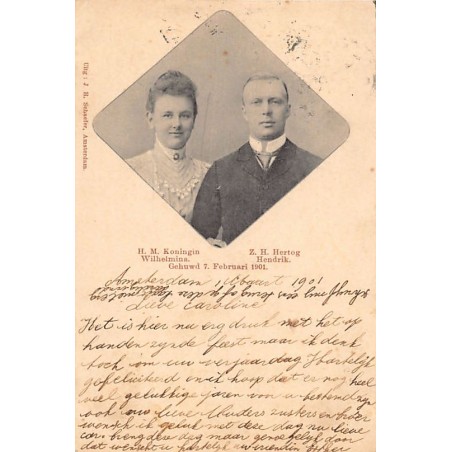 Uitg: J. H. Schaefer, Amsterdam.
H. M. Koningin
Wilhelmina.
Z. H. Hertog
Hendrik.
Gehuwd 7. Februari 1901.
Amsterdam 1 Maart 1901
Lieve Caroline
Het is hier nu erg druk met het op
handen zijnde feest maar ik denk
toch om uw verjaardag Hartelijk
gefeliciteerd en ik hoop dat er nog heel
veel gelukkige jaren voor u bestemd zijn
ook uw lieve Moeder zusters en broer
wensch ik geluk met deze dag nu lieve
car. breng deze dag maar genoegelijk door
dat wenscht u hartelijk